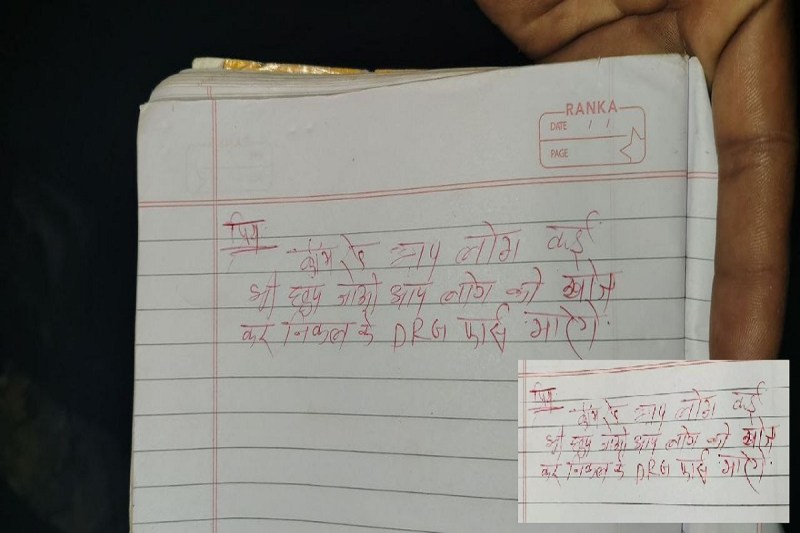 RANKA
DATE / /
PAGE
प्रिय
कॉमरेड आप लोग कई
भी छुप जाओ आप लोग को खोज
कर निकल के DRG फोर्स मारेगे
प्रिय
कॉमरेड आप लोग कई
भी छुप जाओ आप लोग को खोज
कर निकल के DRG फोर्स मारेगे